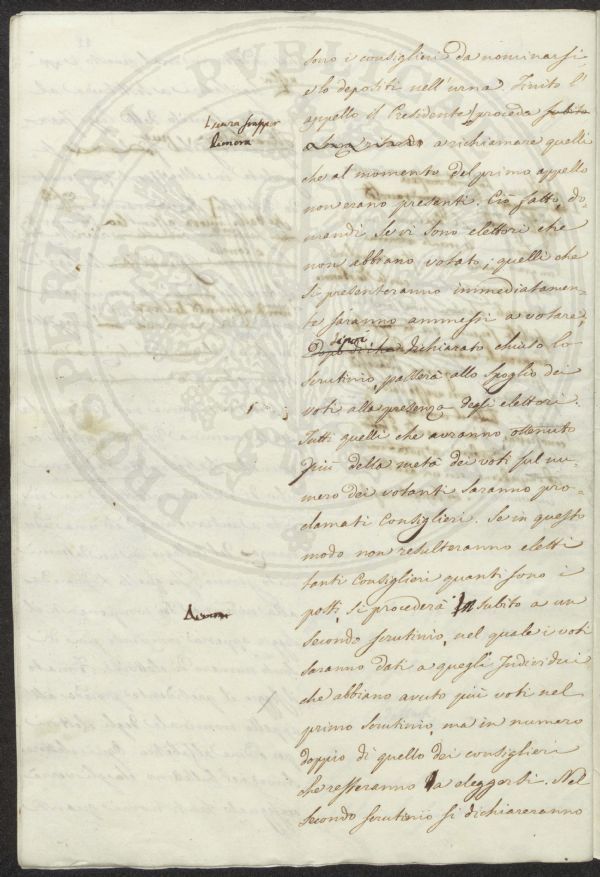 sono i consiglieri da nominarsi
e lo depositi nell'urna. Finito l'
appello il Presidente proceda subito
senza frapper
dimora
a richiamare quelli
che al momento del primo appello
non erano presenti. Ciò fatto, do-
mandi se vi sono elettori che
non abbiano votato; quelli che
si presenteranno immediatamen-
te saranno ammessi a votare,
dipoi
Dopo di che dichiarato chiuso lo
scrutinio, passerà allo spoglio dei
voti alla presenza degli elettori.
Tutti quelli che avranno ottenuto
più della metà dei voti sul nu-
mero dei votanti saranno pro-
clamati Consiglieri. Se in questo
modo non resulteranno eletti
tanti Consiglieri quanti sono i
posti, si procederà subito a un
secondo scrutinio, nel quale i voti
saranno dati a quegli Individui
che abbiano avuto più voti nel
primo scrutinio, ma in numero
doppio di quello dei consiglieri
che resteranno a eleggersi. Nel
secondo scrutinio si dichiareranno
PROSPERITAS PVBLICA